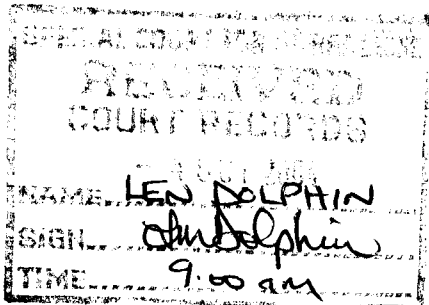 SPECIAL COURT FOR SIERRA LEONE
RECEIVED
COURT RECORDS
NAME LEN DOLPHIN
SIGN Len Dolphin
TIME 9.00 AM